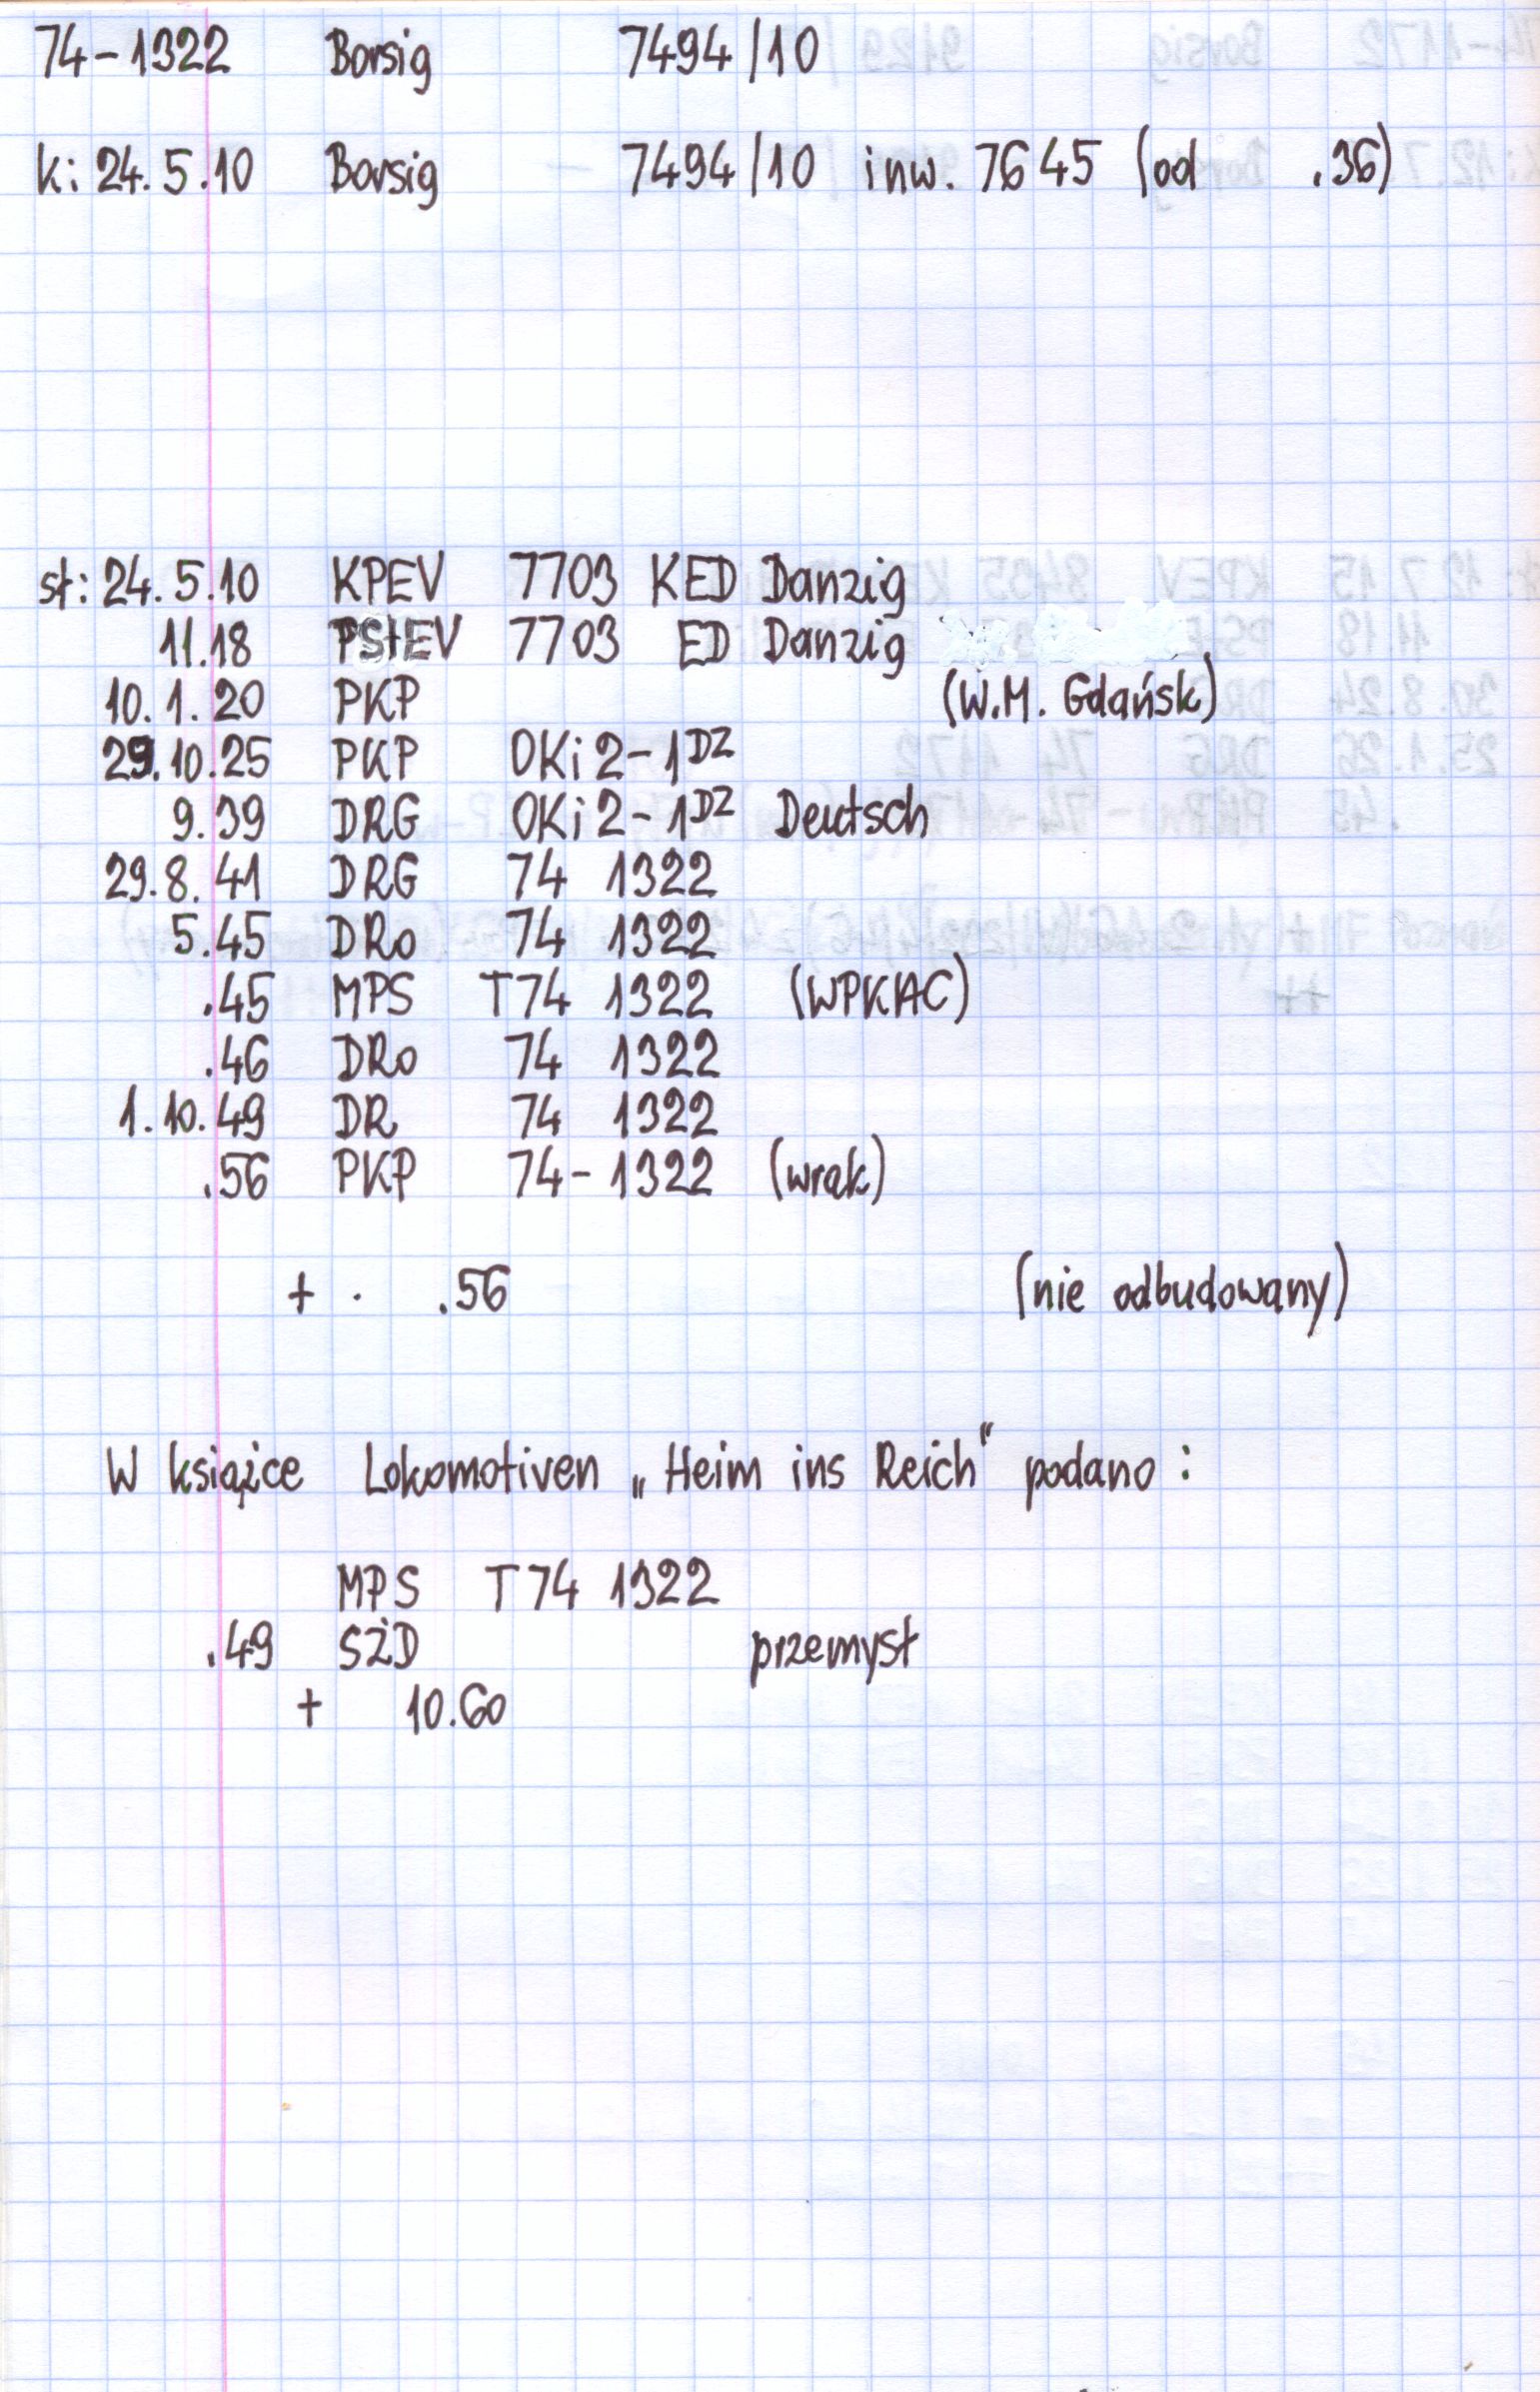 74-1322 Borsig 7494/10
k: 24.5.10 Borsig 7494/10 inw. 7645 (od .36)
st: 24.5.10 KPEV 7703 KED Danzig
11.18 PStEV 7703 ED Danzig
10.1.20 PKP (W.M. Gdańsk)
29.10.25 PKP OKi2-1DZ
9.39 DRG OKi2-1DZ Deutsch
29.8.41 DRG 74 1322
5.45 DRo 74 1322
.45 MPS T74 1322 (WPKAC)
.46 DRo 74 1322
1.10.49 DR 74 1322
.56 PKP 74-1322 (wrak)
+ . .56 (nie odbudowany)
W książce Lokomotiven „Heim ins Reich" podano:
MPS T74 1322
.49 SŻD przemysł
+ 10.60